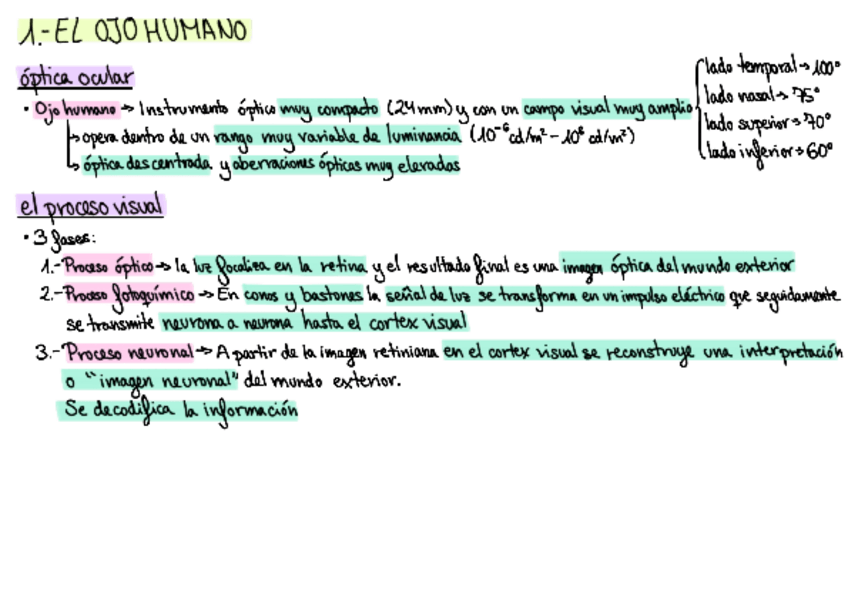 1.-EL OJO HUMANO
óptica ocular
· Ojo humano → Instrumento óptico muy compacto (24mm) y con un campo visual muy amplio
lado temporal → 100°
lado nasal → 75°
lado superior → 70°
lado inferior → 60°
↳ opera dentro de un rango muy variable de luminancia (10⁻⁶ cd/m² - 10⁶ cd/m²)
↳ óptica descentrada y aberraciones ópticas muy elevadas
el proceso visual
· 3 fases:
1.- Proceso óptico → la luz focaliza en la retina y el resultado final es una imagen óptica del mundo exterior
2.- Proceso fotoquímico → En conos y bastones la señal de luz se transforma en un impulso eléctrico que seguidamente
se transmite neurona a neurona hasta el cortex visual
3.- Proceso neuronal → A partir de la imagen retiniana en el cortex visual se reconstruye una interpretación
o "imagen neuronal" del mundo exterior.
Se decodifica la información